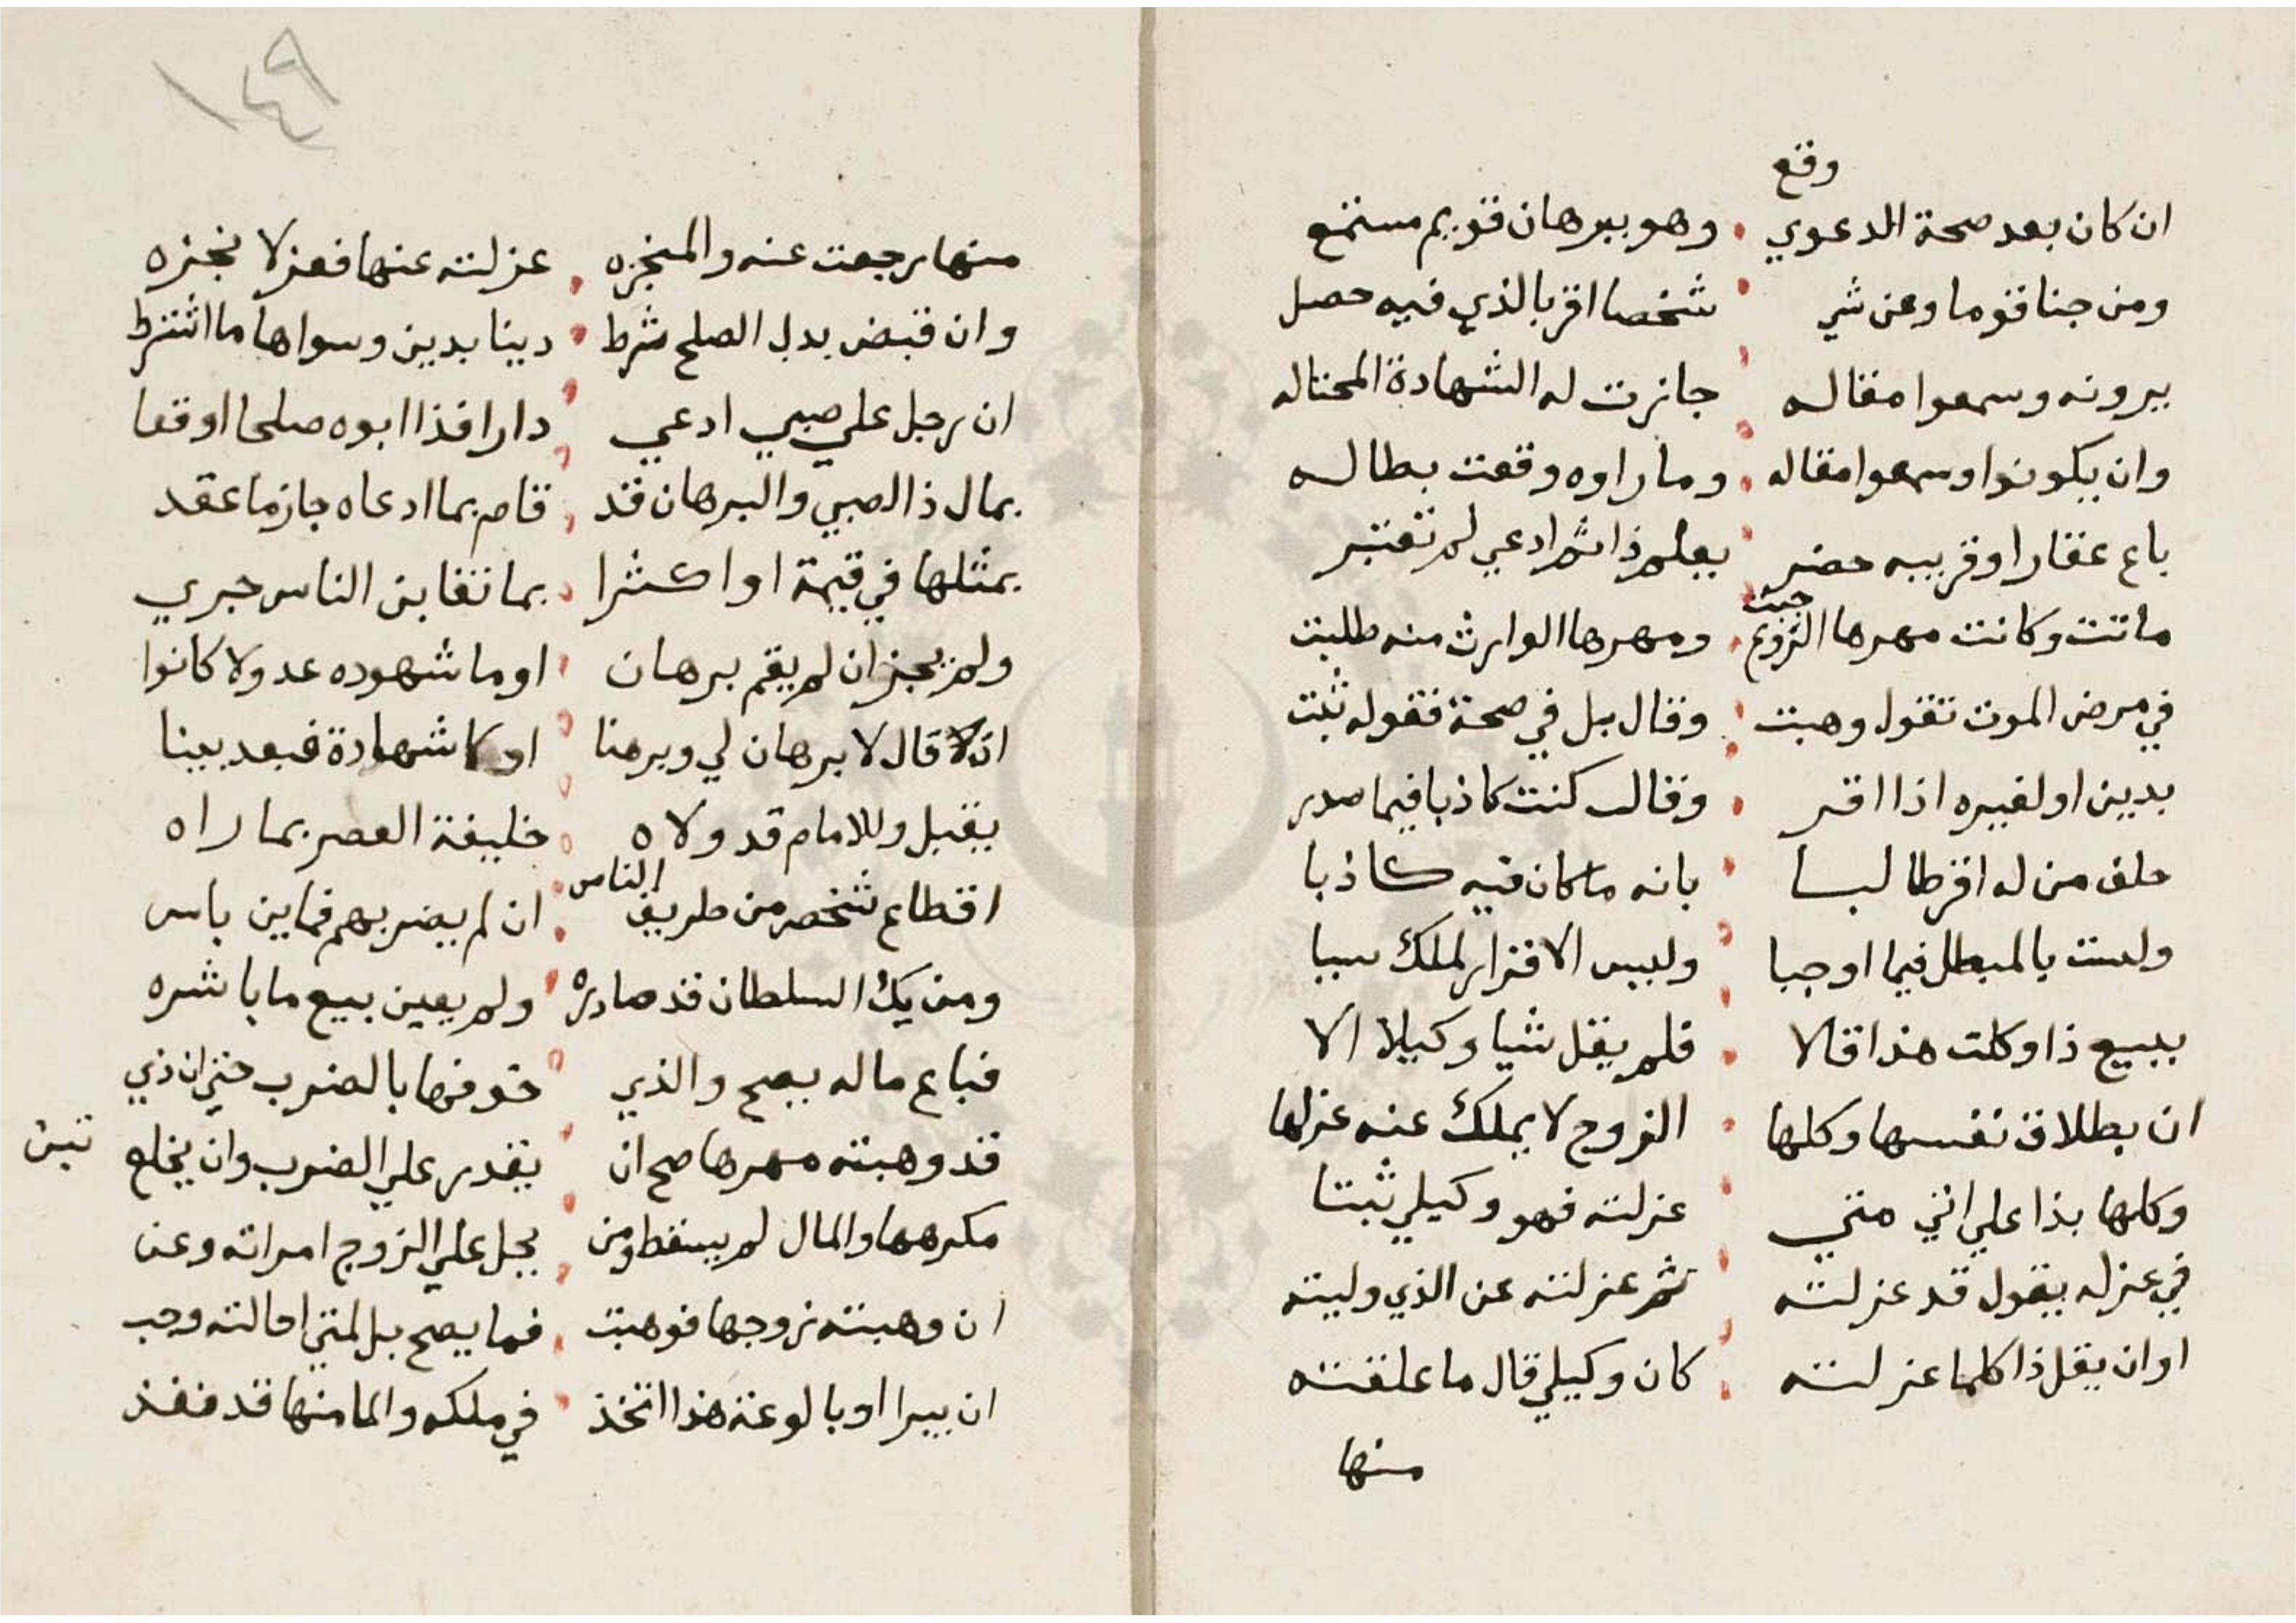 وقع
ان كان بعد صحة الدعوي وهو ببرهان قويم مستمع
ومن جنا قوما وعن شي شخصا اقر بالذي فيه حصل
يرونه وسمعوا مقاله جازت له الشهادة المحتاله
وان يكونوا وسمعوا مقاله وما راوه وقعت بطاله
باع عقارا وقريبه حضر يعلم ذا ثم ادعي لم تعتبر
ماتت وكانت مهرها الزوج حبت ومهرها الوارث منه طلبت
في مرض الموت تقول وهبت وقال بل في صحة فقوله ثبت
بدين او لغيره اذا اقر وقال كنت كاذبا فيما صدر
حلف من له اقر طالبا بانه ما كان فيه كاذبا
ولست بالمبطل فيما اوجبا وليس الاقرار لملك سببا
ببيع ذا وكلت هذا قالا فلم يقل شيا وكيلا الا
ان بطلاق نفسها وكلها الزوج لا يملك عنه عزلها
وكلها بذا علي اني متي عزلته فهو وكيلي ثبتا
في عزله يقول قد عزلته ثم عزلته عن الذي وليته
او ان يقل ذا كلما عزلته كان وكيلي قال ما علقته
منها
١٤٩
منها رجعت عنه والمنجزه عزلته عنها فعزلا نجزه
وان قبض بدل الصلح شرط دينا بدين وسواها ما اشترط
ان رجل علي صبي ادعي دارا فذا ابوه صلحا اوقعا
بمال ذا الصبي والبرهان قد قام بما ادعاه جاز ما عقد
بمثلها في قيمة او اكثرا بما تغابن الناس جري
ولم يجز ان لم يقم برهان او ما شهوده عدولا كانوا
قال لا برهان لي وبرهنا او شهادة فبعد بينا
يقبل وللامام قد ولاه خليفة العصر بما راه
اقطاع شخص من طريق الناس ان لم يضر بهم فما بن باس
ومن يك السلطان قد صادره ولم يعين بيع ما باشره
فباع ماله يصح والذي خوفها بالضرب حتي ان ذي
قد وهبته مهرها صح ان يقدر علي الضرب وان يخلع تبن
مكرهها والمال لم يسقط ومن يحل علي الزوج امراته وعن
ان وهبته زوجها فوهبت فما يصح بل لمن احالته وجب
ان بيرا او بالوعة هذا اتخذ في ملكه والما منها قد نفذ